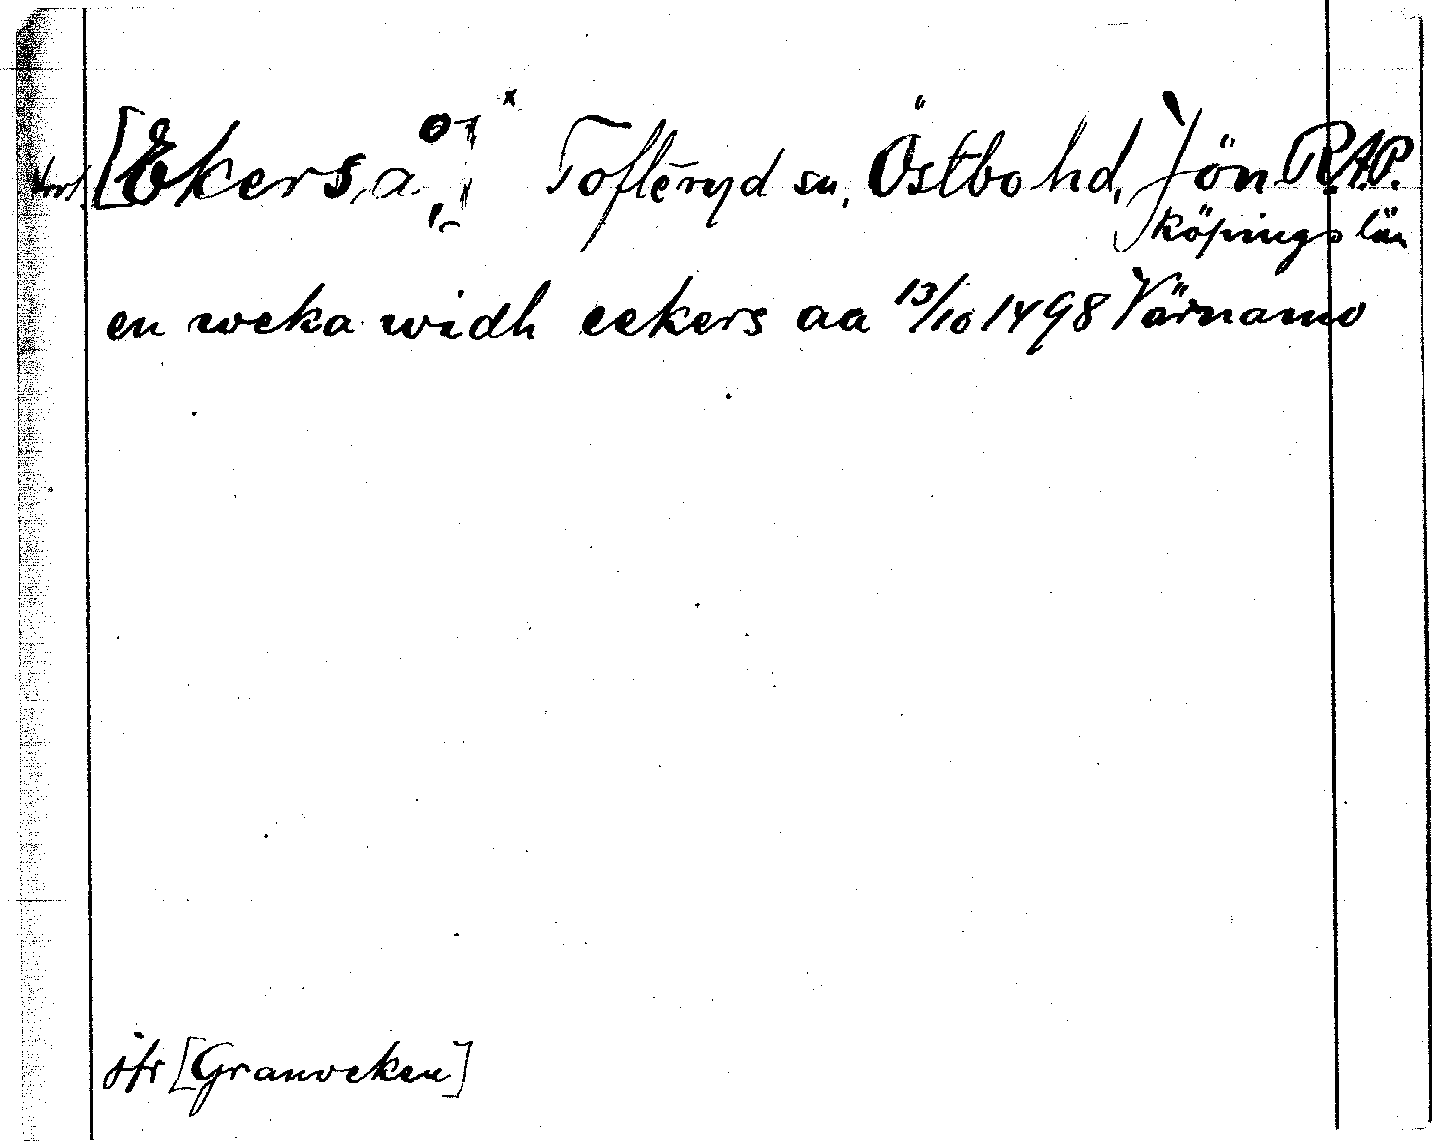 [Ekers å,] x Tofteryd sn, Östbo hd, Jön R.A.P.
köpings län
en weka widh eekers aa 13/10 1498 Värnamo
jfr [Granveken]